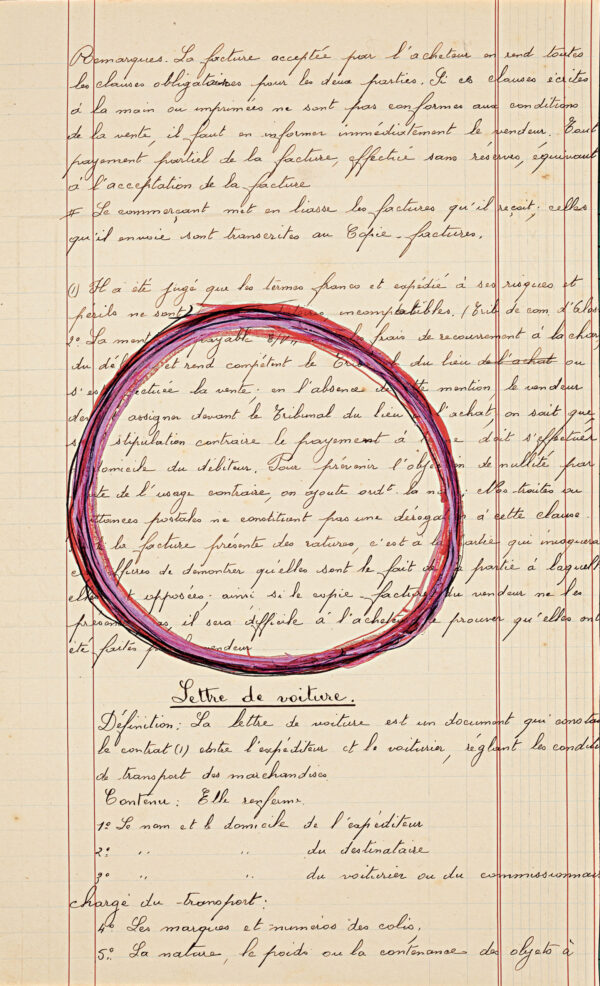 Remarques. La facture acceptée par l'acheteur en rend toutes
les clauses obligatoires pour les deux parties. Si ces clauses écrites
à la main ou imprimées ne sont pas conformes aux conditions
de la vente, il faut en informer immédiatement le vendeur. Tout
payement partiel de la facture, effectué sans réserves, équivaut
à l'acceptation de la facture
# Le commerçant met en liasse les factures qu'il reçoit; celles
qu'il envoie sont transcrites au Copie-factures.
(1) Il a été jugé que les termes franco et expédié à ses risques et
périls ne sont incompatibles. (Trib. de com d'Alos
2º La ment payable frais de recouvrement à la char
du dé et rend compétent le du lieu de l'achat ou
s'es ectuée la vente; en l'absence de te mention, le vendeur
de assigner devant le Tribunal du lieu l'achat, on sait que,
s stipulation contraire le payement à doit s'effectuer
domicile du débiteur. Pour prévenir l'objec on de nullité par
te de l'usage contraire, on ajoute ordt. la n : Nos traites ou
ttances postales ne constituent pas une déroga à cette clause.
la facture présente des ratures, c'est à la partie qui
chiffres de démontrer qu'elles sont le fait de partie à laquell
ell t opposées. ainsi si le copie-factures du vendeur ne les
présen as, il sera difficile à l'achete prouver qu'elles ont
été faites p vendeur
Lettre de voiture.
Définition: La lettre de voiture est un document qui consta
le contrat (1) entre l'expéditeur et le voiturier, réglant les condit
de transport des marchandises.
Contenu: Elle renferme.
1º Le nom et le domicile de l'expéditeur
2º " " du destinataire
3º " " du voiturier ou du commissionnai
chargé du transport:
4º Les marques et numéros des colis,
5º La nature, le poids ou la contenance des objets à